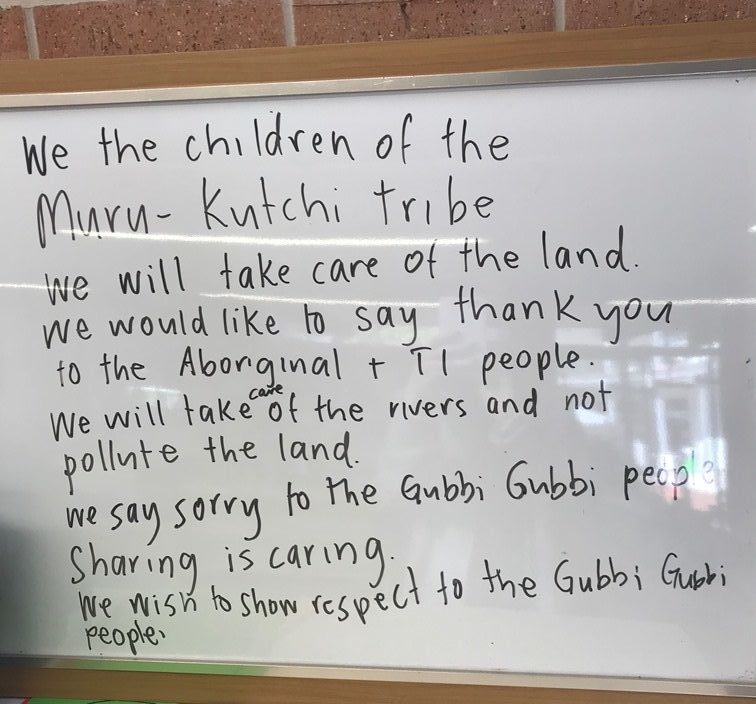 We the children of the
Muru- Kutchi tribe
We will take care of the land.
We would like to say thank you
to the Aboriginal + TI people.
We will take care of the rivers and not
pollute the land.
We say sorry to the Gubbi Gubbi people
Sharing is caring.
We wish to show respect to the Gubbi Gubbi
people.